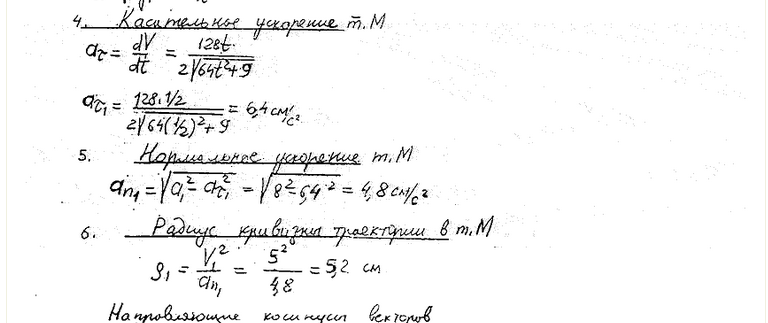 4. Касательное ускорение т. М
aτ = dV/dt = 128t/2√64t²+9
aτ₁ = 128·1/2/2√64(1/2)²+9 = 6,4 см/с²
5. Нормальное ускорение т. М
an₁ = √a₁²-aτ₁² = √8²-6,4² = 4,8 см/с²
6. Радиус кривизны траектории в т. М
ρ₁ = V₁²/an₁ = 5²/4,8 = 5,2 см
Направляющие косинусы векторов